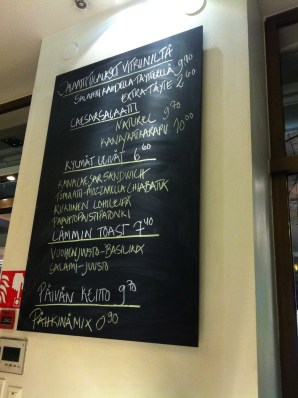 SALAATTI KAHDELLA TÄYTTEELLÄ 9.70
EXTRA TÄYTE 2.60
CAESARSALAATTI
NATUREL 9.70
KANA/KATKARAPU 10.00
KYLMÄT LEIVÄT 6.60
KANACAESAR SANDWICH
TOMAATTI-MOZZARELLA CHIABATTA
KUNINGAN LOHILEIPÄ
PAAHTOPAISTIPATONKI
LÄMMIN TOAST 7.40
VUOHENJUUSTO-BASILIKA
SALAMI-JUUSTO
PÄIVÄN KEITTO 9.70
PÄHKINÄMIX 0.90